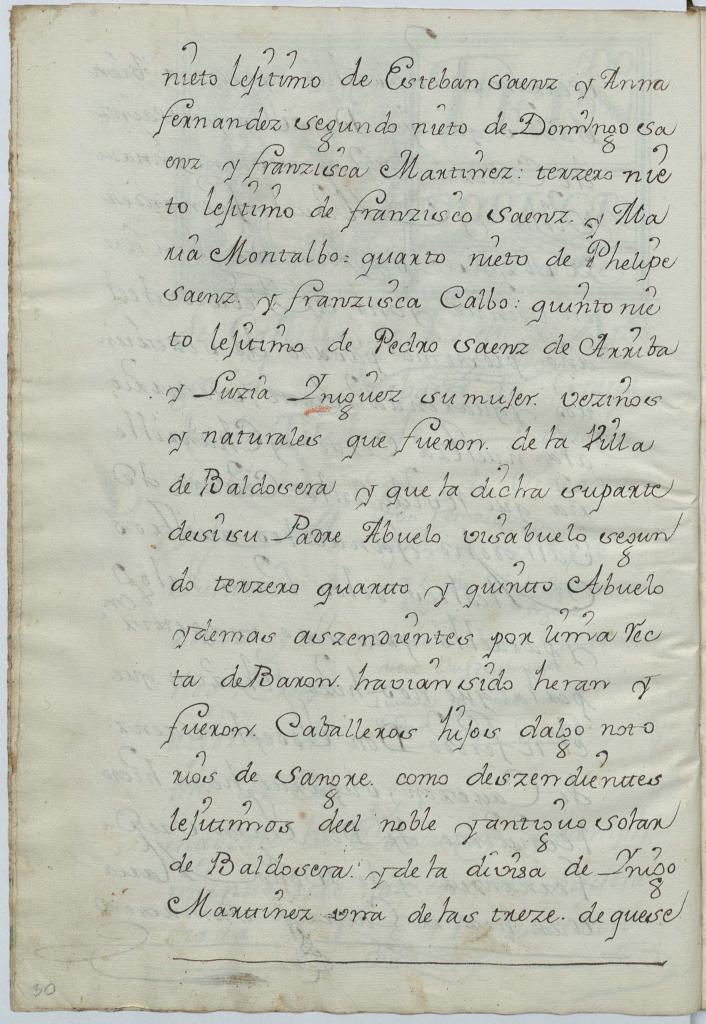 nieto lesitimo de Esteban saenz y Anna
fernandez segundo nieto de Domingo sa
enz y franzisca Martinez: terzero nie
to lesitimo de franzisco saenz. y Ma
ria Montalbo: quarto nieto de Phelipe
saenz. y franzisca Calbo: quinto nie
to lesitimo de Pedro saenz de Arriba
y Luzia Yniguez su muJer. vezinos
y naturales que fueron. de la Villa
de Baldosera y que la dicha suparte
desi su Padre Abuelo visabuelo segun
do terzero quartto y quintto Abuelo
ydemas aszendientes por linia rec
ta deBaron. havian sido heran y
fueron. Caballeros hiJos dalgo noto
rios de sangre. como deszendienttes
lesitimos deel noble yantiguo solar
de Baldosera. y de la divisa de Ynigo
Marttinez vna de las treze. de quese
30